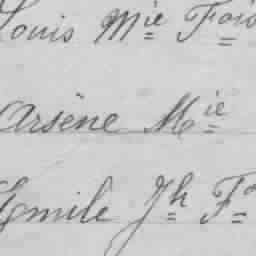 Louis Mie Fois
Arsène Mie
Emile Jh F